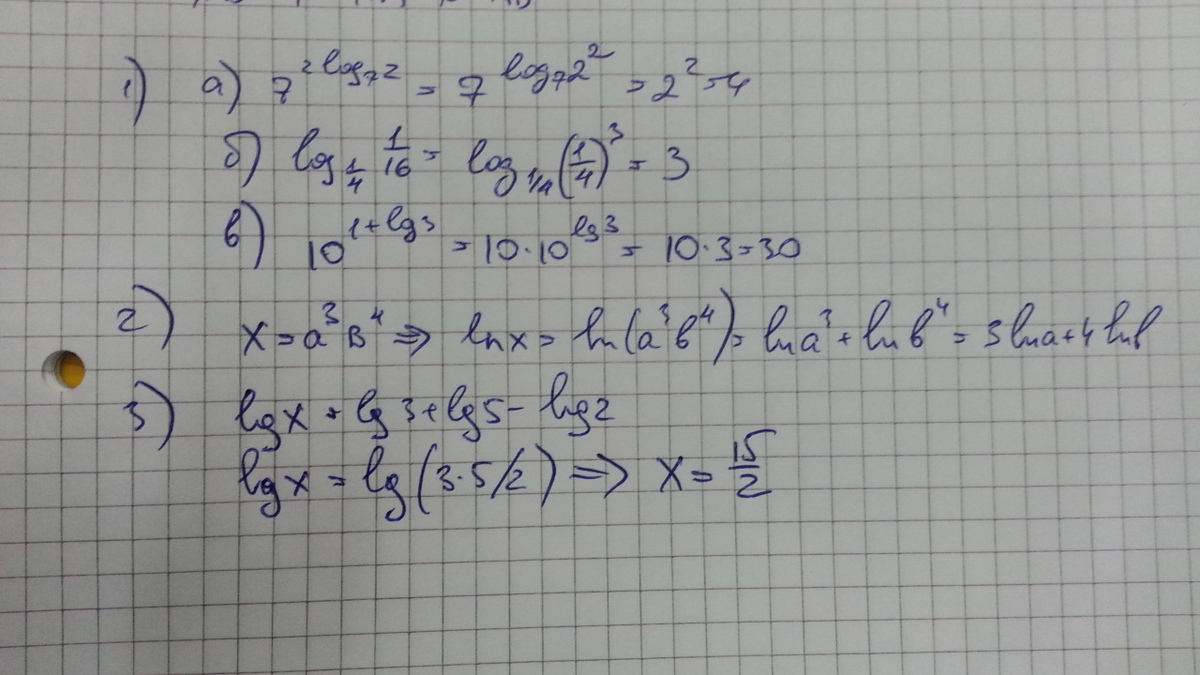 1) а) 7^{2 log_7 2} = 7^{log_7 2^2} = 2^2 = 4
б) log_{1/4} 1/16 = log_{1/4} (1/4)^3 = 3
в) 10^{1+lg3} = 10·10^{lg3} = 10·3=30
2) x=a^3 в^4 ⇒ ln x = ln(a^3 b^4) = ln a^3 + ln b^4 = 3 ln a + 4 ln b
3) lg x = lg 3 + lg 5 - lg 2
lg x = lg (3·5/2) ⇒ x = 15/2